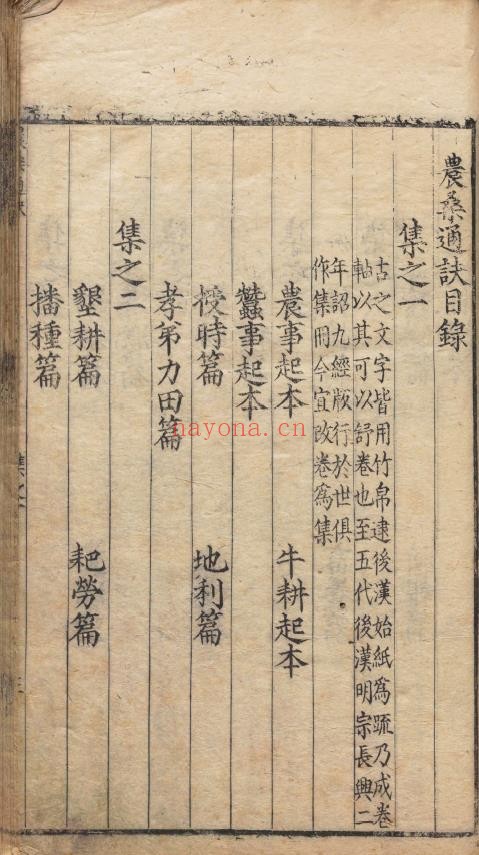 農桑通訣目錄
集之一
古之文字皆用竹帛逮後漢始紙為疏乃成卷
軸以其可以舒卷也至五代後漢明宗長興二
年詔九經版行於世俱
作集冊今宜改卷為集
農事起本 牛耕起本
蠶事起本
授時篇 地利篇
孝弟力田篇
集之二
墾耕篇 耙勞篇
播種篇
nayona.cn